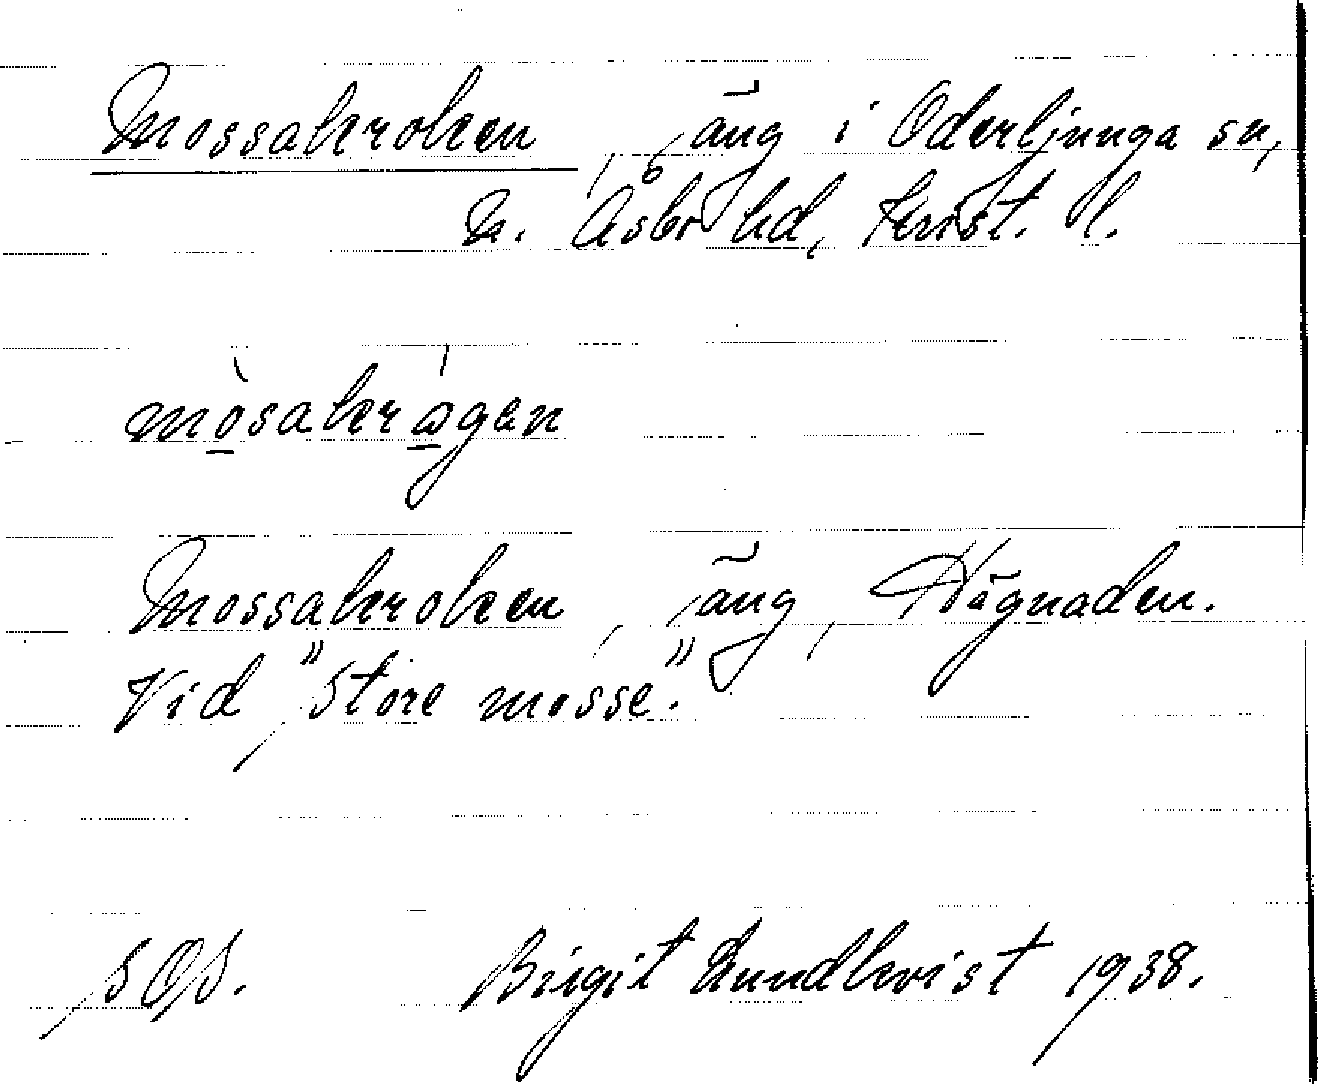 Mossakroken, äng i Oderljunga sn,
N. Åsbo hd, Krist. l.
mòsakrágen
Mossakroken, äng, Hägnaden.
Vid "Store mosse".
SOS. Birgit Lundkvist 1938.